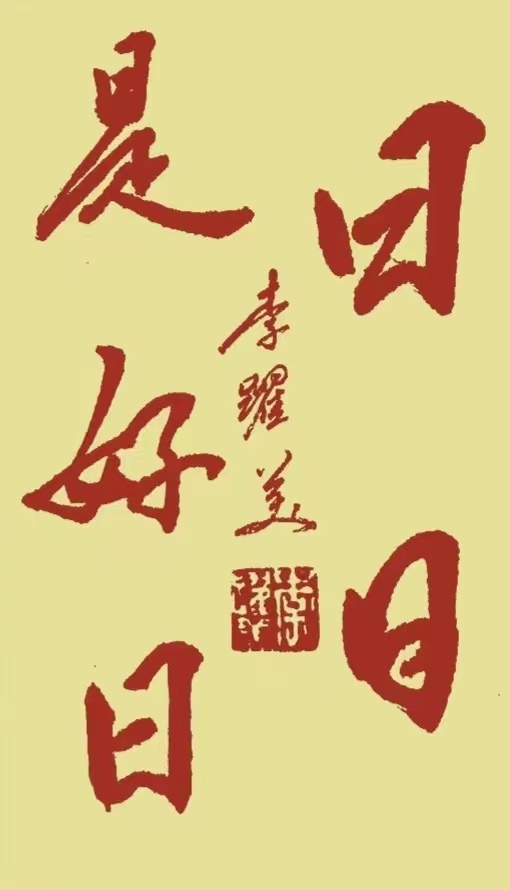 日日
是好日
李躍美